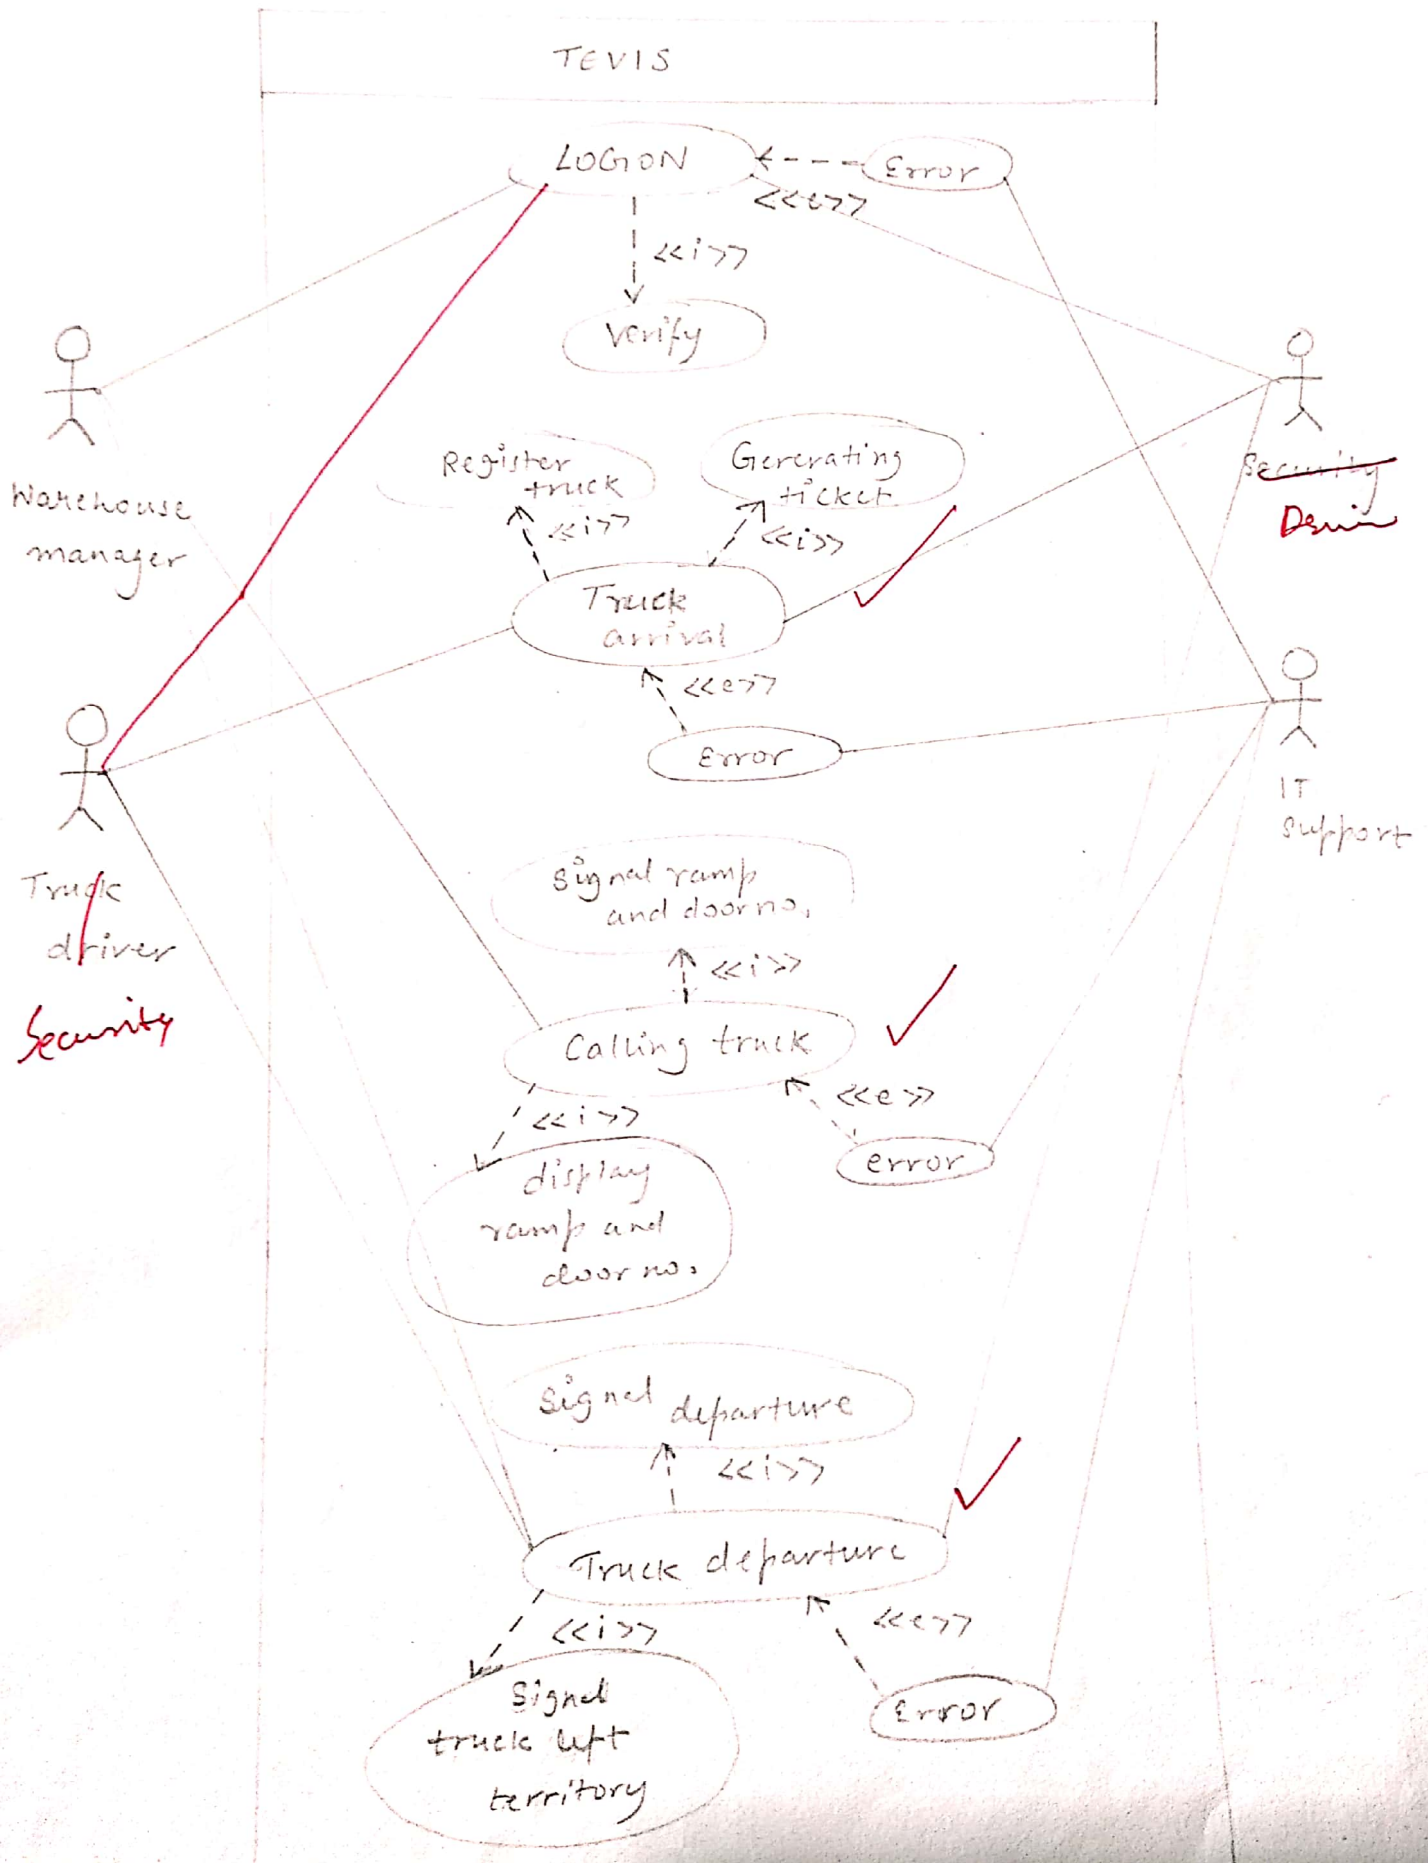 TEVIS
LOGON
Error
<<e>>
<<i>>
Verify
Register
truck
Generating
ticket
<<i>>
<<i>>
Security
Warehouse
manager
Truck
arrival
<<e>>
Error
IT
support
Truck
driver
Security
Signal ramp
and door no.
<<i>>
Calling truck
<<e>>
<<i>>
error
display
ramp and
door no.
Signal departure
<<i>>
Truck departure
<<i>>
<<e>>
Signal
truck left
territory
Error